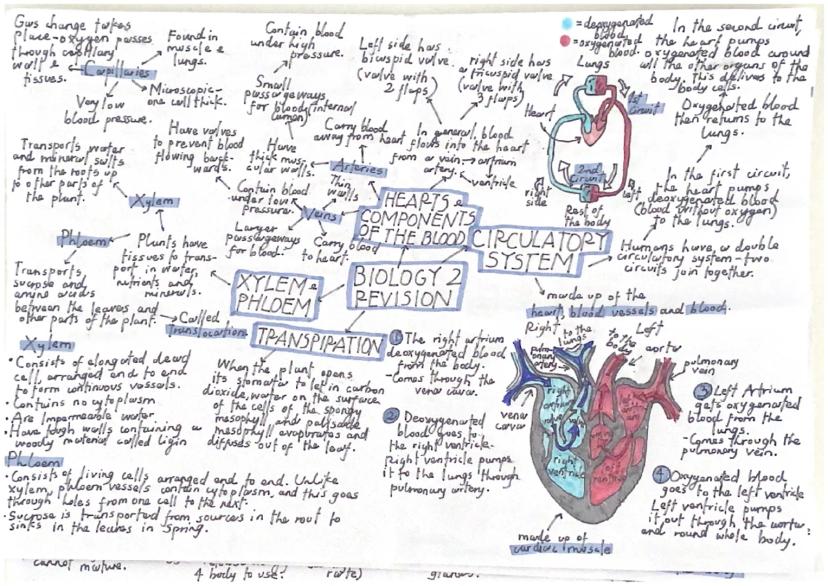 Gas change takes
place-oxygen passes
through capillary
walls & into
tissues.
Capillaries
Found in
muscle &
lungs.
Microscopic-
one cell thick.
Very low
blood pressure.
Contain blood
under high
pressure.
Small
passageways
for blood (internal
lumen)
Left side has
bicuspid valve
(valve with
2 flaps)
right side has
a tricuspid valve
(valve with
3 flaps)
Carry blood
away from heart
Have
thick mus-
cular walls.
Arteries
In general, blood
flows into the heart
from a vein → artrium
artery. ← ventricle
Have valves
to prevent blood
flowing back-
wards.
Thin
walls
Contain blood
under low
pressure.
Veins
Larger
passageways
for blood.
Carry blood
to heart.
= deoxygenated
blood
= oxygenated
blood
Lungs
1st
circuit
Heart
2nd
circuit
right
side
left
Rest of
the body
In the second circuit,
the heart pumps
oxygenated blood around
all the other organs of the
body. This delivers to the
body cells.
Oxygenated blood
then returns to the
lungs.
In the first circuit,
the heart pumps
deoxygenated blood
(blood without oxygen)
to the lungs.
Humans have a double
circulatory system-two
circuits join together.
HEARTS &
COMPONENTS
OF THE BLOOD
CIRCULATORY
SYSTEM
BIOLOGY 2
REVISION
XYLEM &
PHLOEM
TRANSPIRATION
made up of the
heart, blood vessels and blood.
Transports water
and mineral salts
from the roots up
to other parts of
the plant.
Xylem
Phloem
Plants have
tissues to trans-
port in water,
nutrients and
minerals.
Transports
sucrose and
amino acids
between the leaves and
other parts of the plant.
Called
Translocation
Xylem
• Consists of elongated dead
cell, arranged end to end
to form continuous vessels.
• Contains no cytoplasm
• Are Impermeable water.
• Have tough walls containing a
woody material called ligin
Phloem
• Consists of living cells arranged end to end. Unlike
xylem, phloem vessels contain cytoplasm, and this goes
through holes from one cell to the next.
• Sucrose is transported from sources in the root to
sinks in the leaves in Spring.
When the plant opens
its stomata to let in carbon
dioxide, water on the surface
of the cells of the spongy
mesophyll and palisade
mesophyll evaporates and
diffuses out of the leaf.
1 The right artrium
deoxygenated blood
from the body.
- Comes through the
vena cavar.
2 Deoxygenated
blood goes to
the right ventricle.
Right ventricle pumps
it to the lungs through
pulmonary artery.
Right
to the
lungs
to the
body
Left
aortar
pulmonary
artery
pulmonary
vein
vena
cavar
right
ventricle
made up of
cardiac muscle
3 Left Artrium
gets oxygenated
blood from the
lungs.
- Comes through the
pulmonary vein.
4 Oxygenated blood
goes to the left ventricle
Left ventricle pumps
it out through the aortar
and round whole body.
4 body to use.